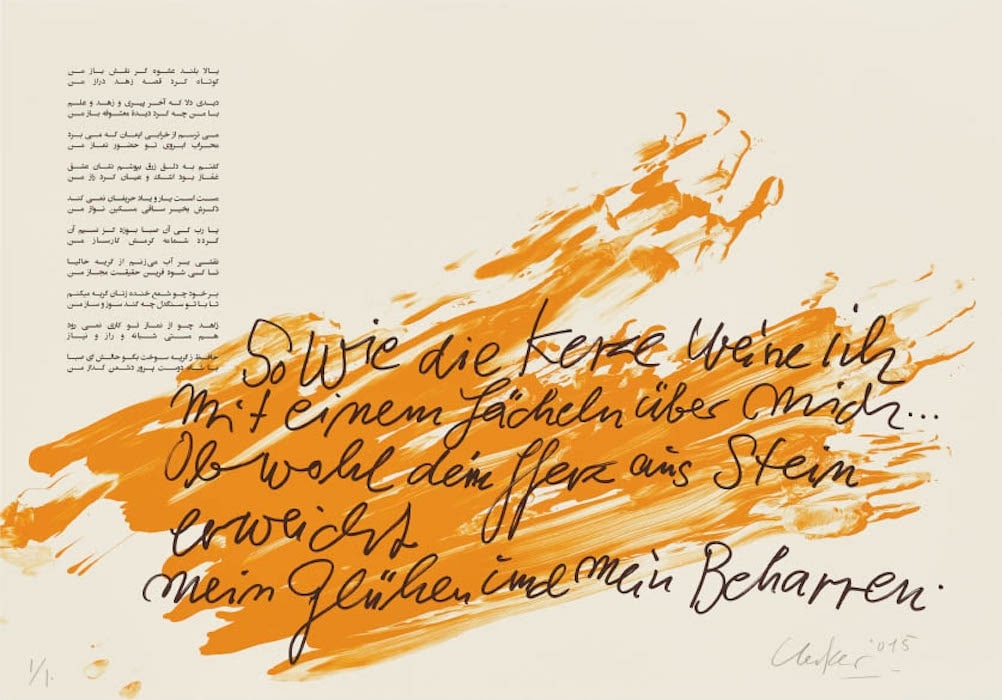 بالا بلند عشوه گر نقش باز من
کوتاه کرد قصه زهد دراز من
دیدی دلا که آخر پیری و زهد و علم
با من چه کرد دیدۀ معشوقه باز من
می ترسم از خرابی ایمان که می برد
محراب ابروی تو حضور نماز من
گفتم به دلق زرق بپوشم نشان عشق
غماز بود اشک و عیان کرد راز من
مست است یار و یاد حریفان نمی کند
ذکرش بخیر ساقی مسکین نواز من
یا رب کی آن صبا بوزد کز نسیم آن
گردد شمامه کرمش کارساز من
نقشی بر آب می‌زنم از گریه حالیا
تا کی شود قرین حقیقت مجاز من
بر خود چو شمع خنده زنان گریه میکنم
تا با تو سنگدل چه کند سوز و ساز من
زاهد چو از نماز تو کاری نمی رود
هم مستی شبانه و راز و نیاز
حافظ ز گریه سوخت بگو حالش ای صبا
با شاه دوست پرور دشمن گداز من
So wie die Kerze weine ich
mit einem Lächeln über mich...
Obwohl dein Herz aus Stein
erweicht
mein Glühen und mein Beharren.
1/1.
Uecker '015